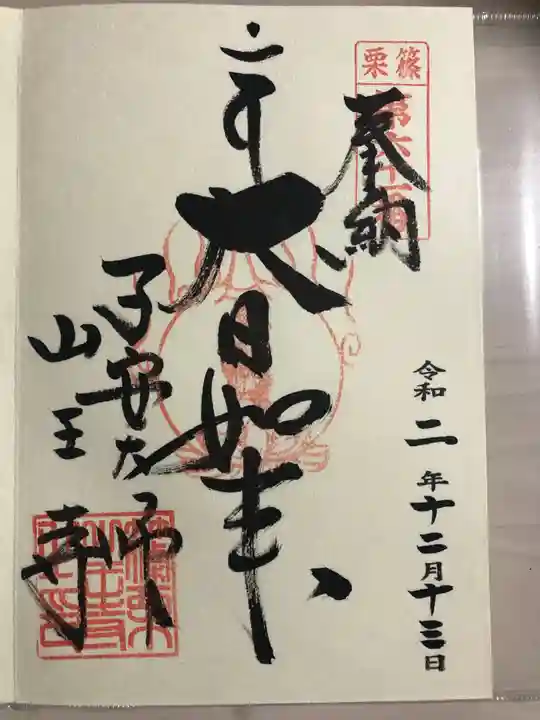 篠栗
第六十一番
奉納
令和二年十二月十三日
大日如来
子安大師
山王寺